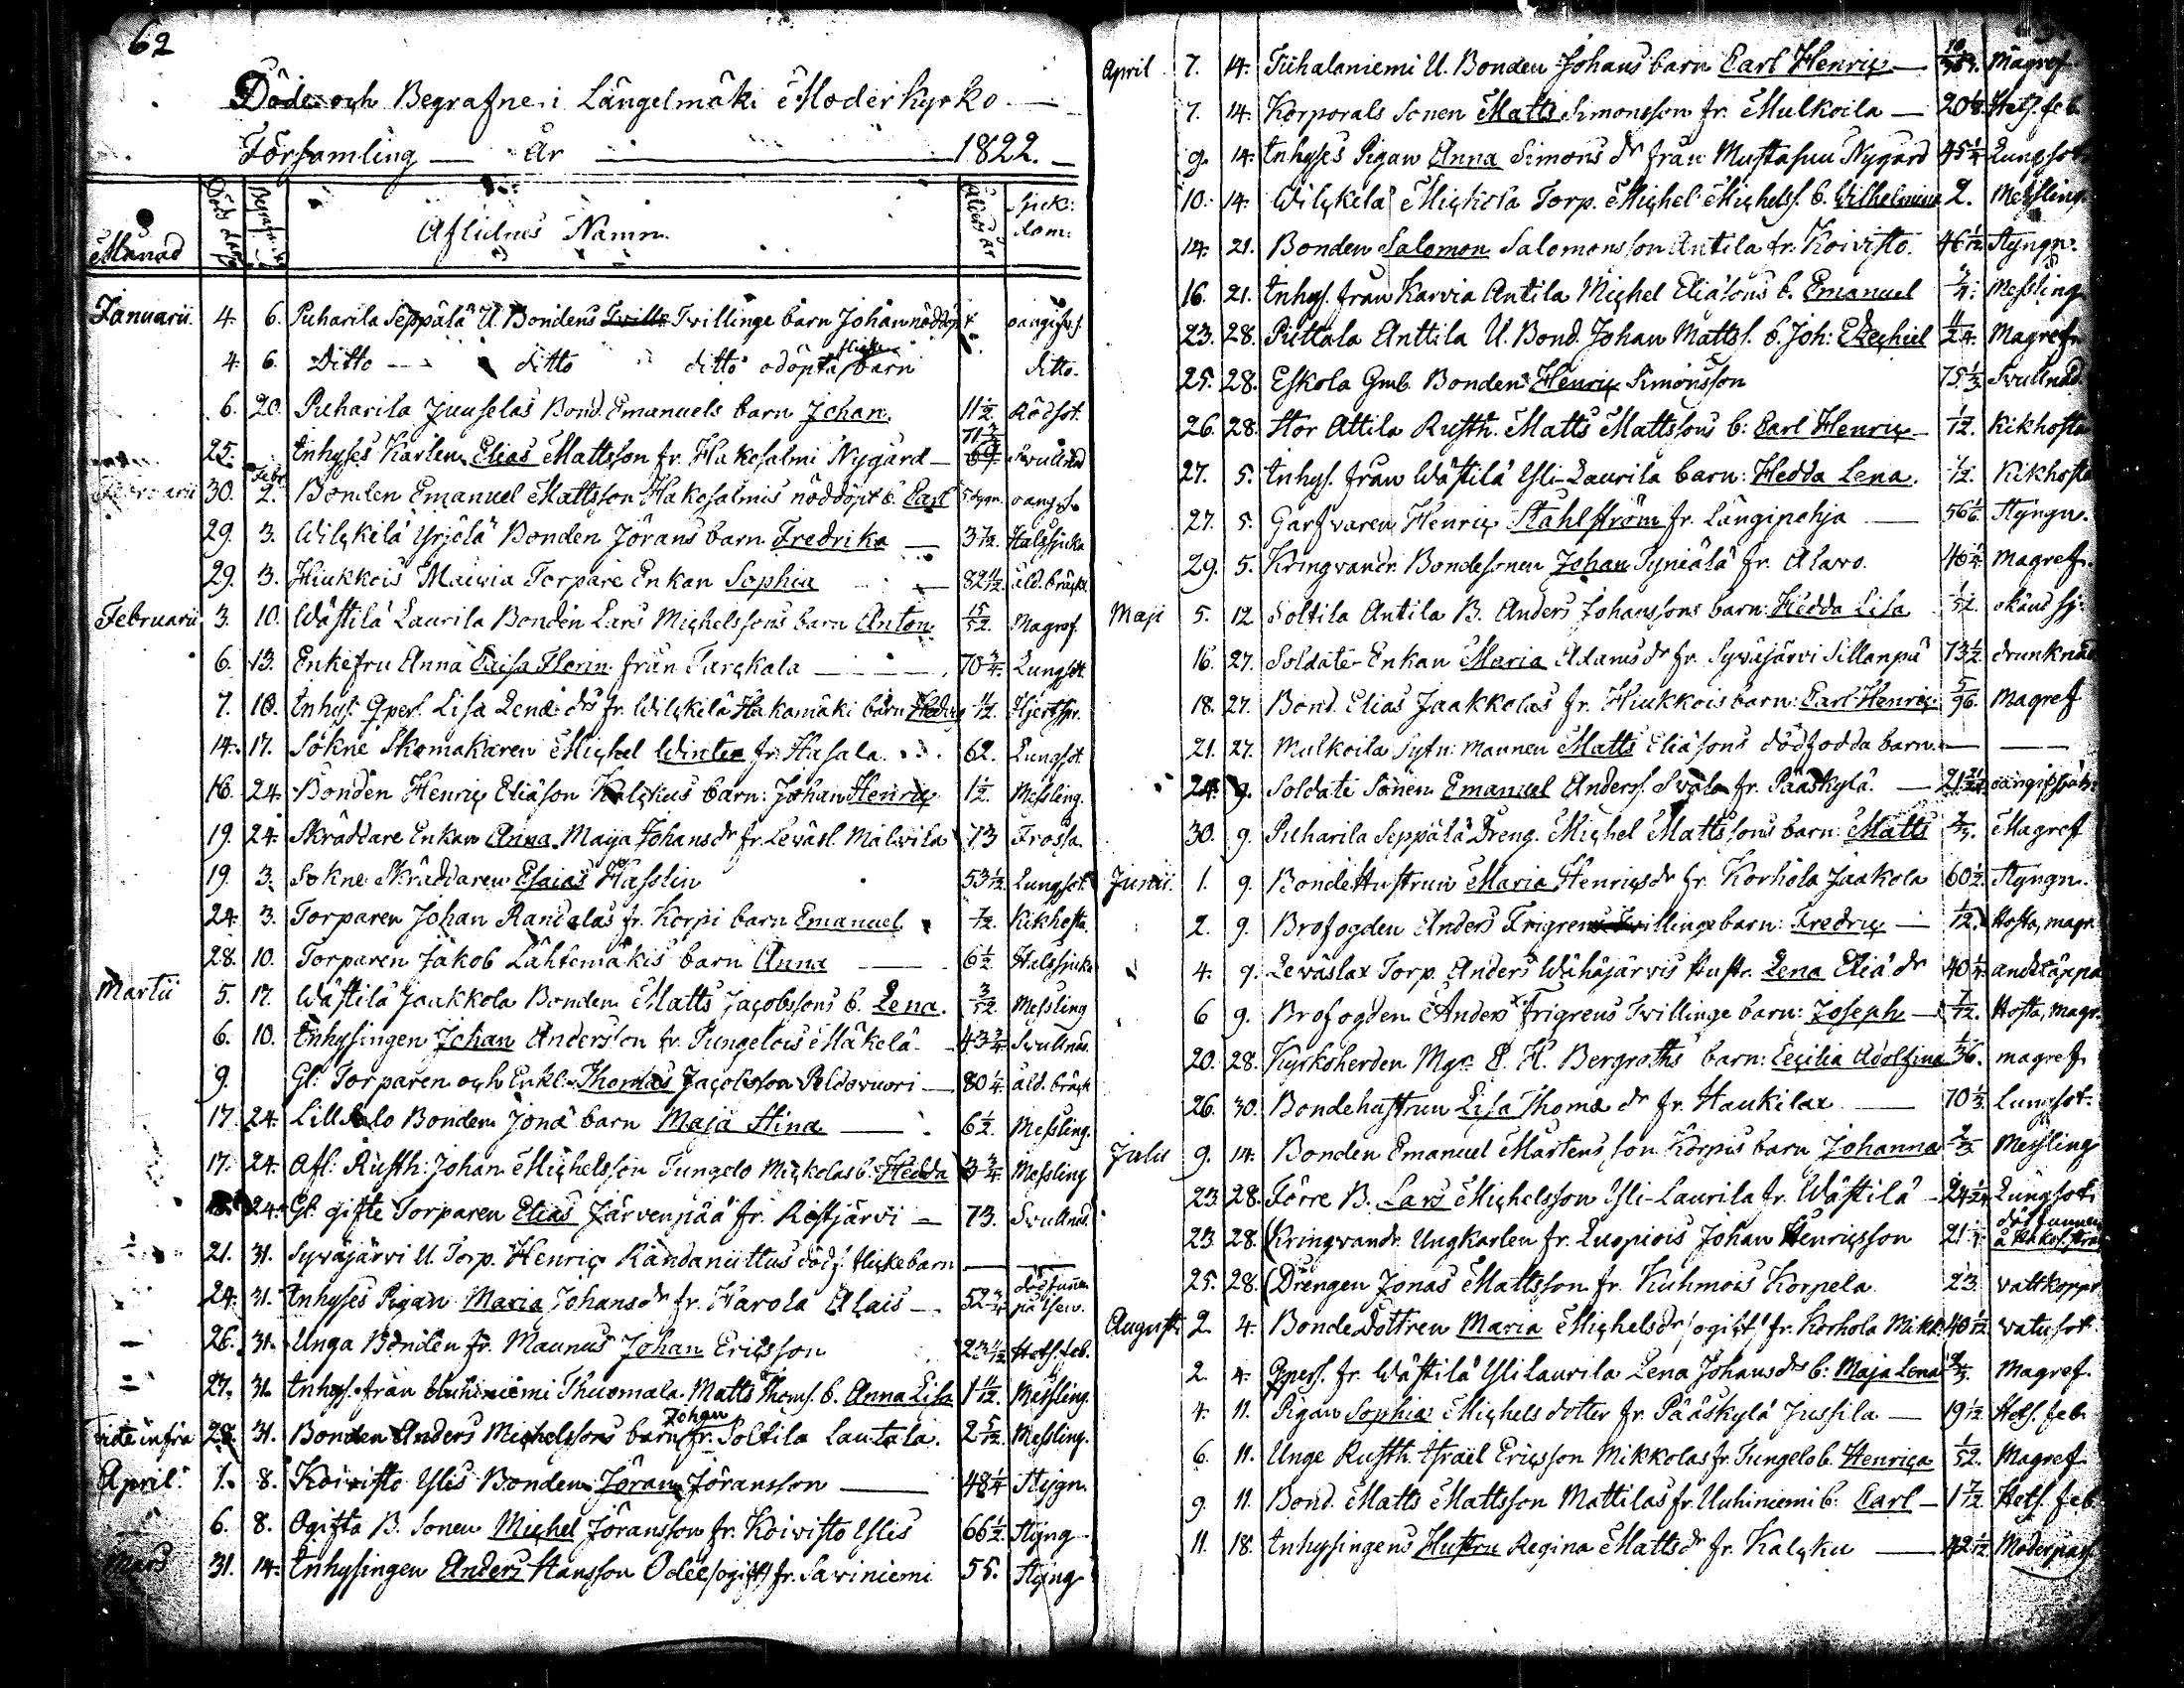 62
Döde och Begrafne i Längelmäki Moder Kyrko
Församling — År — 1822. —
Månad Döds dag Begrafn. Aflidnes Namn. Ålders år Sjuk: dom:
Januarii. 4. 6. Puharila Seppälä U. Bondens Twillinge barn Johan nöddöpt oangifws.
4. 6. Ditto — ditto ditto odöpta flicke barn ditto.
6. 20. Puharila Juuselas Bond. Emanuels barn Johan. 11/2 Rödsot.
25. Inhyses Karlen Elias Mattsson fr. Hakosalmi Nygård — Svullnad
Februarii 30. Febr. 2. Bonden Emanuel Mattsson Hakosalmis nöddöpt b. Carl 5 dygn. oangifs.
29. 3. Wilckilä Yrjölä Bonden Jörans barn Fredrika — 3 7/12. Halssjuka
29. 3. Hiukkois Maiwia Torpare Enkan Sophia — 82 11/12. åld. bräckl.
Februarii 3. 10. Wästilä Laurila Bonden Lars Michelssons barn Anton. 15/52. Magref.
6. 13. Enkefru Anna Caisa Florin från Tarckala — 70 3/4. Lungsot.
7. 10. Inhys. Qpers. Lisa Lenæ drs fr. Wilckilä Hakamäki barn Hedvig Hjertspr.
14. 17. Sokne Skomakaren Michel Winter fr. Hasala. 62. Lungsot.
16. 24. Bonden Henric Eliæson Kalckus barn: Johan Henric 1 1/2. Messling.
19. 24. Skräddare Enkan Anna Maja Johansdr fr. Lewäsl. Mälwilä 73 Frossa.
19. 3. Sokne Skräddaren Esaias Hasslin 53 1/12. Lungsot.
24. 3. Torparen Johan Randalas fr. Korpi barn Emanuel. Kikhosta.
28. 10. Torparen Jakob Lähtemäkis barn Anna — 6 1/2. Halssjuka
Martii 5. 17. Wästilä Jaakkola Bonden Matts Jacobssons b. Lena. 3/52. Messling
6. 10. Inhysingen Johan Andersson fr. Pungelois Mäkelä. 43 3/4. Svullnad.
9. Gl. Torparen och Enkl. Thomas Jacobsson Peldovuori — 80 1/4. åld. bräck
17. 24. Lill Bonden Jonæ barn Maja Stina — 6 1/2. Messling.
17. 24. Afl: Rusth: Johan Michelsson Pungelo Mickolas b. Hedda 3 3/4. Messling
24. Gl. gifte Torparen Elias Järvenpää fr. Ristjärvi — 73. Svullnad.
21. 31. Sywäjärvi U. Torp. Henric Rändaniittus dödf. flickebarn —
24. 31. Inhyses Pigan Maria Johansdr fr. Harola Alais — 52 3/4. dödfunnen på
26. 31. Unga Bonden fr. Maunus Johan Ericsson 23 Hets. feb.
27. 31. Inhys. från Uuhiniemi Thuomala Matts Thoms. b. Anna Lisa 1 11/12. Messling.
vide infra 28. 31. Bonden Anders Michelssons barn Johan fr. Soltila Lautala. 2 5/12. Messling.
April. 1. 8. Koivisto Ylis Bonden Jöran Jöransson — 48 1/4 Stygn.
6. 8. Ogifta B. Sonen Michel Jöransson fr. Koivisto Ylis 66 1/2. Styng
Mars 31. 14. Inhysingen Anders Hansson Odée (ogift) fr. Sawiniemi 55. Styng
April 7. 14. Tuhalaniemi U. Bonden Johans barn Carl Henric — Magref.
7. 14. Korporals Sonen Matts Simonsson fr. Mulkoila — 20 Hets. feb.
9. 14. Inhyses Pigan Anna Simons dr från Mustasuu Nygård 45 1/4. Lungsot
10. 14. Wilckilä Mickola Torp. Michel Michelss. b. Wilhelmina 2. Messling.
14. 21. Bonden Salomon Salomonsson Antila fr. Koivisto. 46 1/12. Styngn.
16. 21. Inhys. från Karvia Antila Michel Eliæsons b. Emanuel Messling
23. 28. Puttala Anttila U. Bond. Johan Mattss. b. Joh: Ezechiel 11/24. Magref.
25. 28. Eskola Gmb. Bonden Henric Simonsson 75 1/3. Svullnad.
26. 28. Stor Attila Rusth. Matts Mattssons b: Carl Henric — 1/12. Kikhosta
27. 5. Inhys. från Wästilä Yli-Laurila barn: Hedda Lena. 1/12. Kikhosta
27. 5. Garfvaren Henric Stahlström fr. Längipohja — 56 1/6. Styngn.
29. 5. Kringvandr. Bondesonen Johan Syniälä fr. Alavo. 40 Magref.
Maji 5. 12 Soltila Antila B. Anders Johanssons barn: Hedda Lisa 1/52. okänd sj.
16. 27. Soldate-Enkan Maria Adamsdr fr. Sywäjärvi Sillanpä 73 1/2. drunknad
18. 27. Bond. Elias Jaakkolas fr. Hiukkois barn: Carl Henric. 5/96. Magref
21. 27. Mulkoila Sytn: mannen Matts Eliæsons dödfödda barn. —
24. 9. Soldate Sonen Emanuel Anderss. Swala fr. Pääskylä. —
30. 9. Puharila Seppälä Dreng. Michel Mattssons barn: Matts Magref
Junii. 1. 9. Bonde Hustrun Maria Henricsdr fr. Korhola Jaakola 60 1/2. Styngn.
2. 9. Brofogden Anders Frigrens Twillinge barn: Fredric — Hosta, magr
4. 9. Lewäslax Torp. Anders Wähäjärvis Hustr. Lena Eliæ dr 40 1/4. andtäppa
6 9. Brofogden Anders Frigrens Twillinge barn: Joseph — Hosta, magr.
20. 28. Kyrkoherden Mgr. C. H. Bergroths barn: Cecilia Adolfina magref.
26. 30. Bondehustrun Lisa Thomæ dr fr. Haukilax — 70 1/3. Lungsot.
Julii 9. 14. Bonden Emanuel Mårtensson Korpis barn Johanna Messling
23. 28. Förre B. Lars Michelsson Yli-Laurila fr. Wästilä — Lungsot.
23. 28. Kringvandr. Ungkarlen fr. Luopiois Johan Henricsson 21 dödfunnen
25. 28. Drengen Jonas Mattsson fr. Kuhmois Korpela 23. vattkoppr
Augusti 2. 4. Bonde Dottren Maria Michelsdr (ogift) fr. Korhola Mikk. 40 1/12 vatusot.
2. 4. Qpers. fr. Wästilä Yli Laurila Lena Johansdrs b: Maja Lena Magref.
4. 11. Pigan Sophia Michels dotter fr. Pääskylä Jussila — 19 1/12 Hets. feb.
6. 11. Unge Rusth. Israël Ericsson Mikkolas fr. Pungelo b. Henrica 1/52. Magref.
9. 11. Bond. Matts Mattsson Mattilas fr. Uuhiniemi b: Carl — 1 7/12. Hets. feb
11. 18. Inhysingens Hustru Regina Mattsdr fr. Kalcku — 42 1/12 Moderpass.